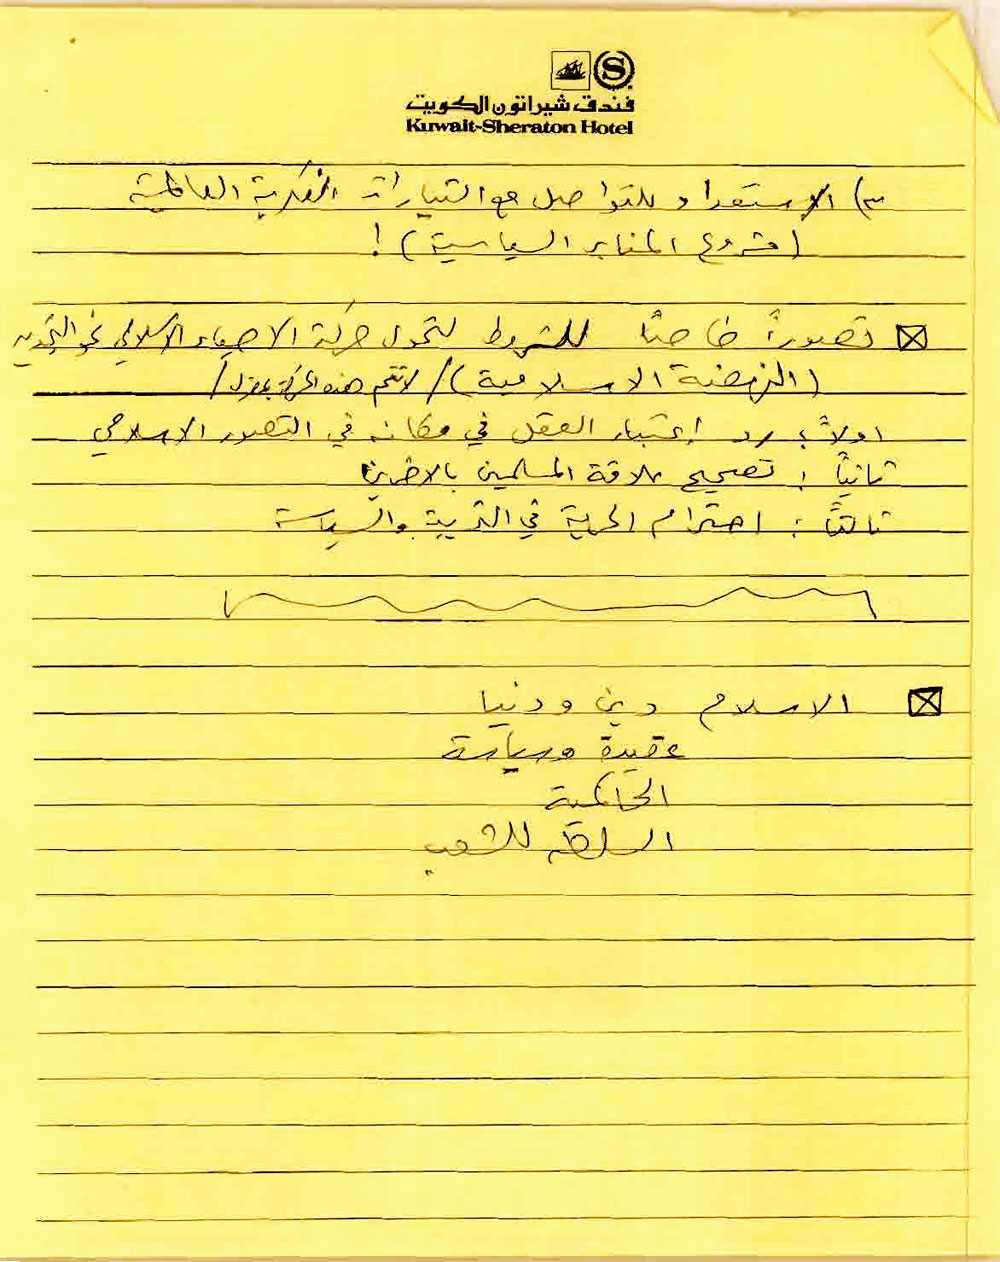 فندق شيراتون الكويت
Kuwait-Sheraton Hotel
٣) الاستعداد للتواصل مع التيارات الفكرية العالمية
(مشروع المنابر السياسية)!
تصوراً خاصاً للشروط لتحول حركة الاحياء الاسلامي نحو التجديد
(النهضة الاسلامية) / لا تتم هذه الحركة بمعزل /
اولاً: رد إعتبار العقل في مكانه في التصور الاسلامي
ثانياً: تصحيح علاقة المسلمين بالآخرين
ثالثاً: احترام الحرية في التربية والسياسة
الاسلام دين ودنيا
عقيدة وسياسة
الحاكمية
السلطه للشعب